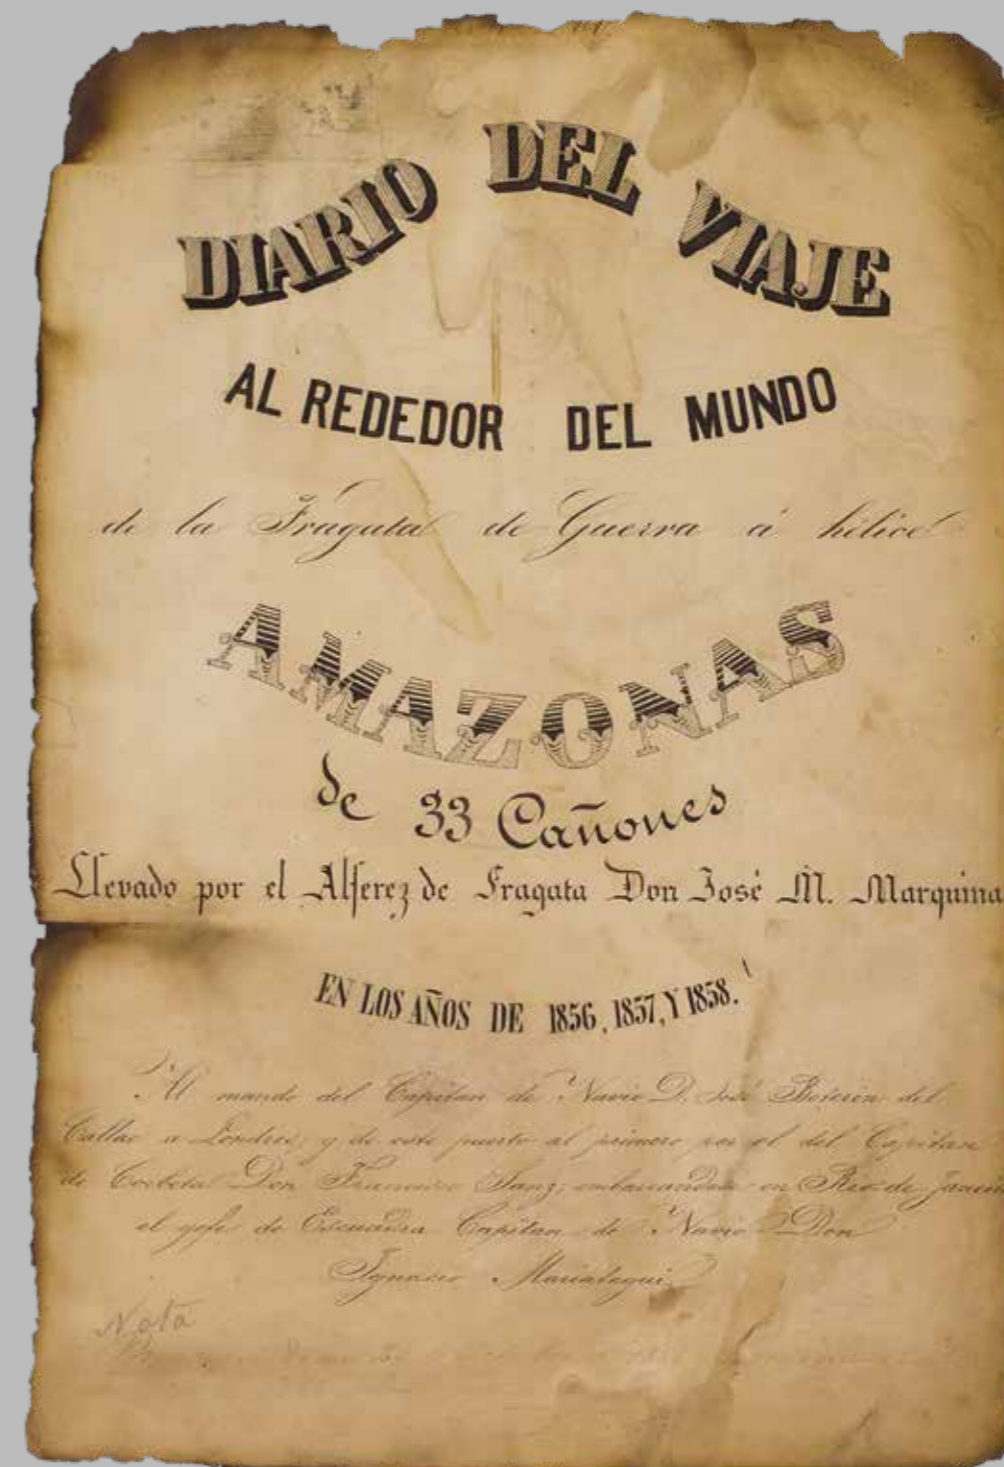 DIARIO DEL VIAJE
AL REDEDOR DEL MUNDO
de la Fragata de Guerra á hélice
AMAZONAS
de 33 Cañones
Llevado por el Alferez de Fragata Don José M. Marquina
EN LOS AÑOS DE 1856, 1857, Y 1858.
Al mando del Capitan de Navio D. José Boterin del
Callao a Londres; y de este puerto al primero por el del Capitan
de Corbeta Don Francisco Sanz; embarcandose en Rio de Janeiro
el gefe de Escuadra Capitan de Navio Don
Ignacio Mariategui
Nota